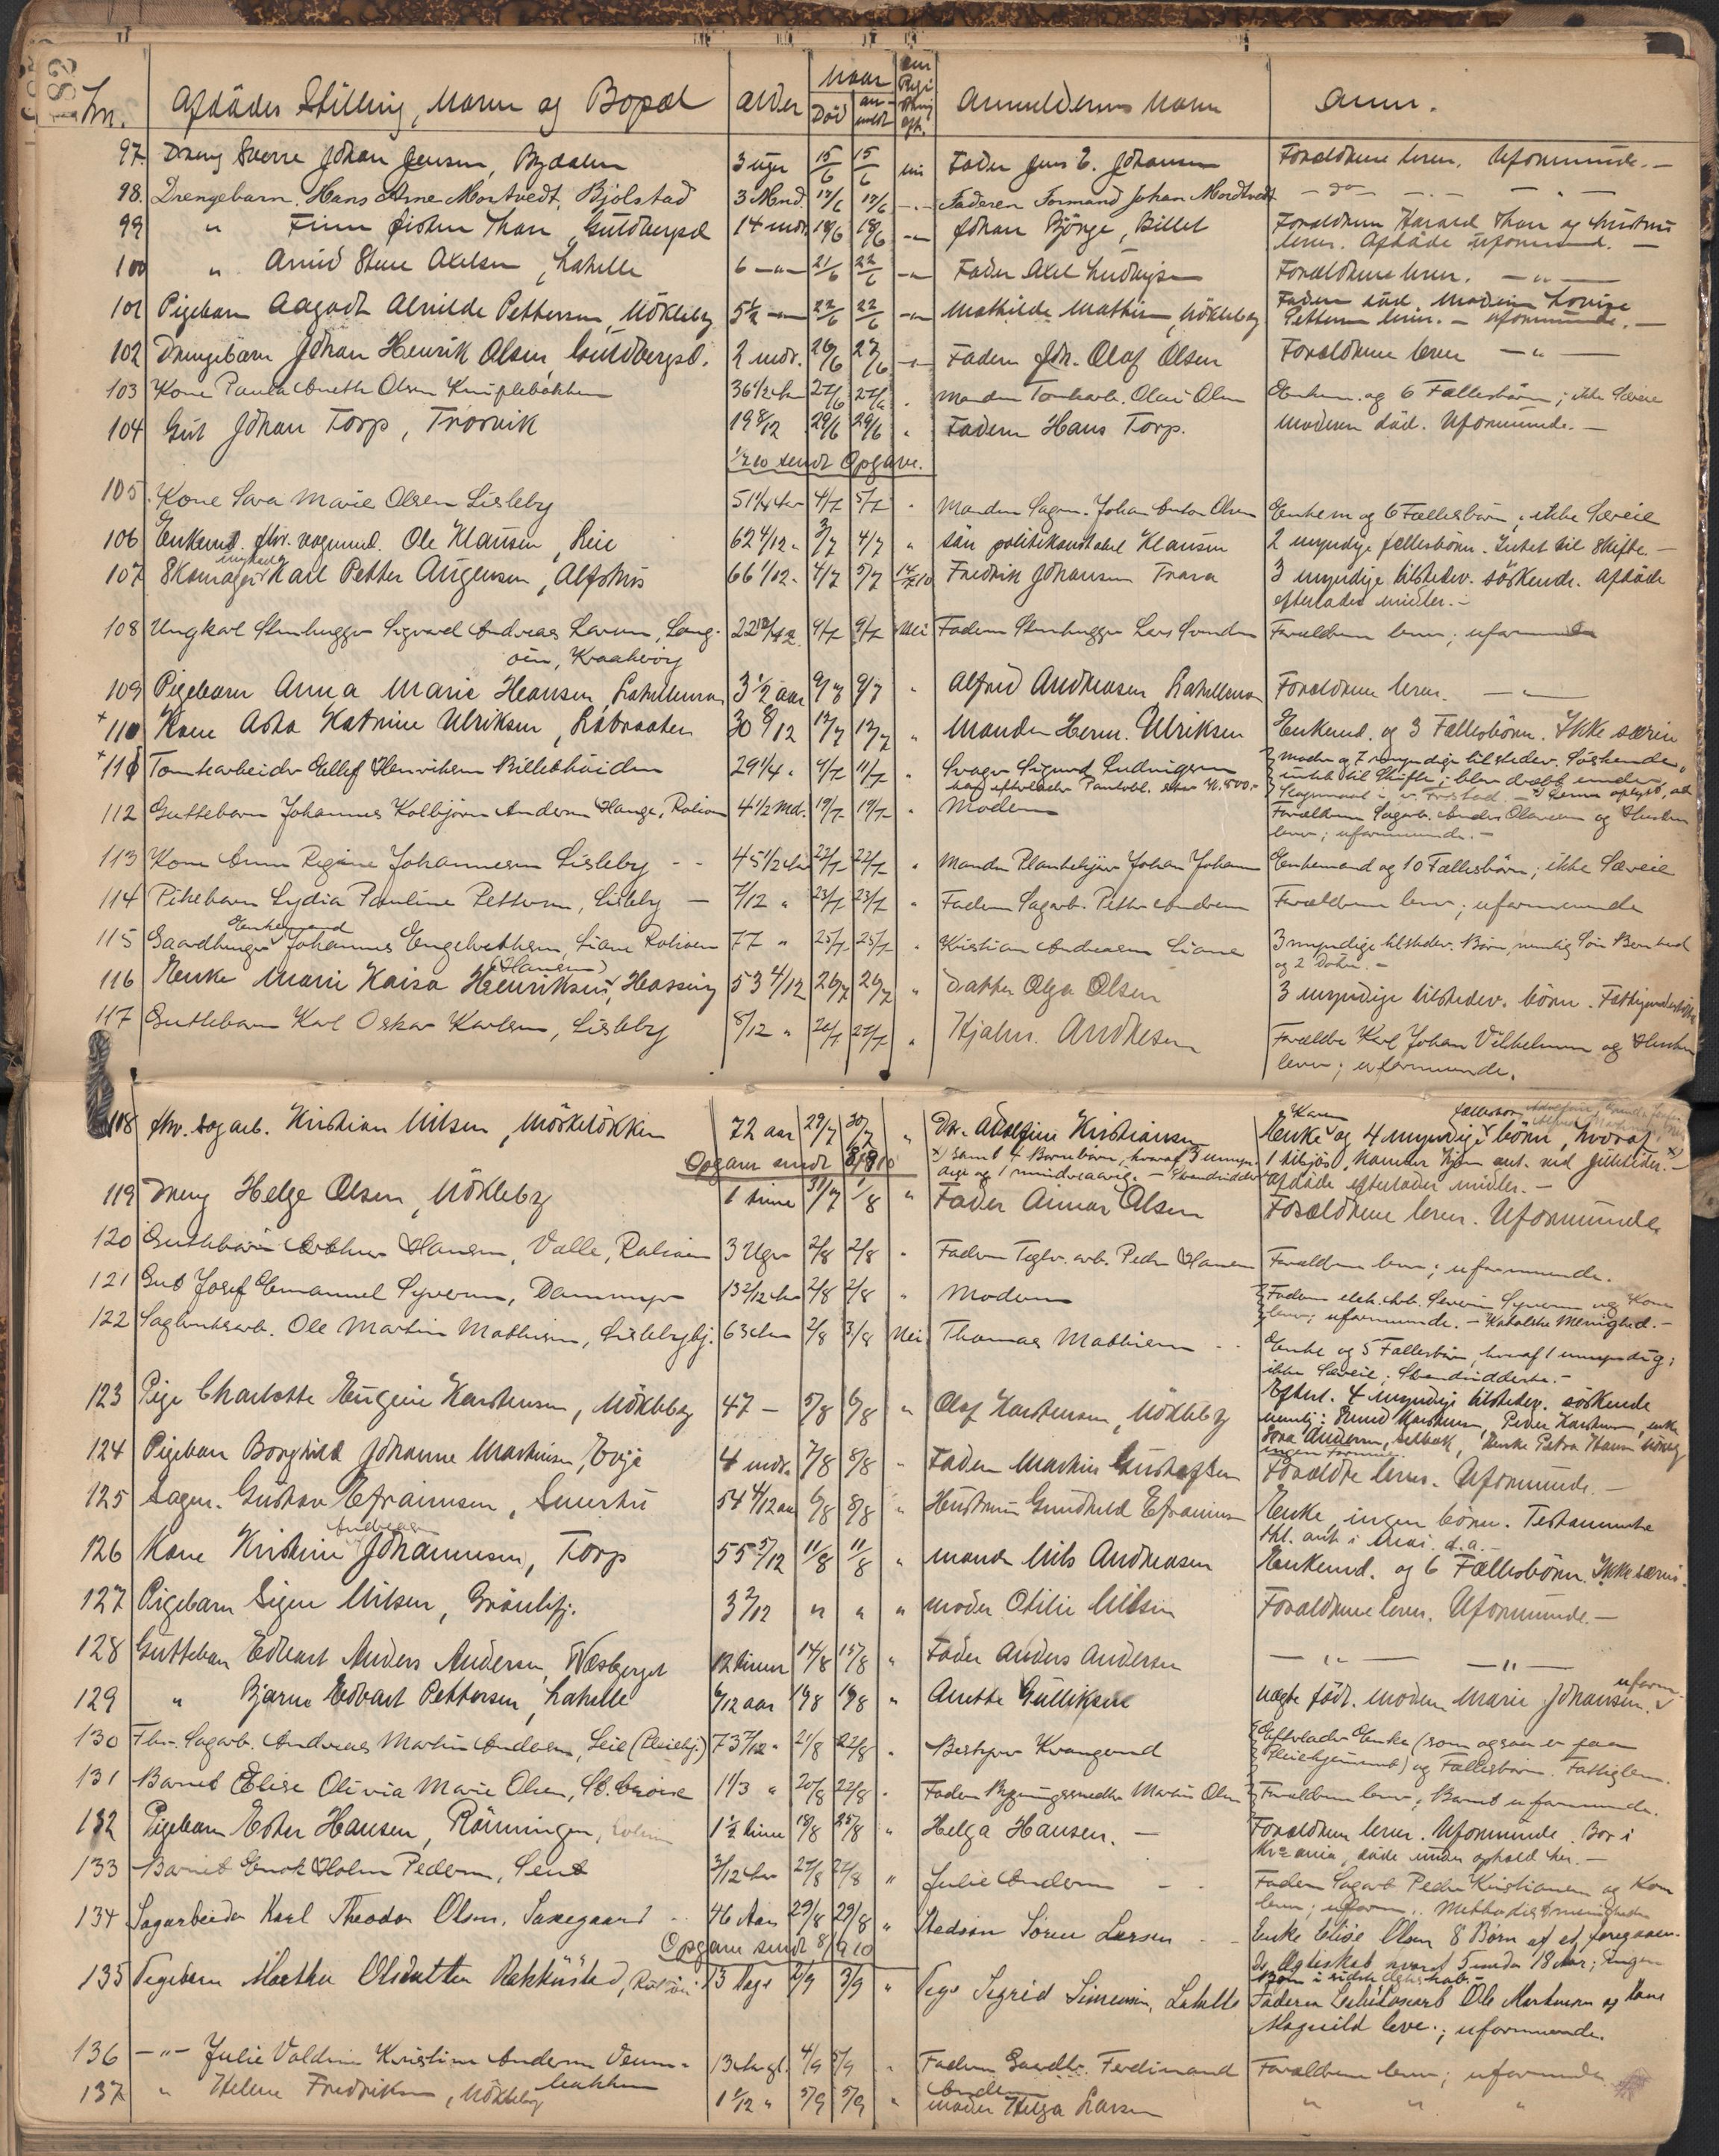 182
Lm. Afdødes Stilling, Navn og Bopæl Alder Naar Død anmeldt Anmelderens Navn Anm.
97. Dreng Sverre Johan Jensen, Rydalen 3 uger 15/6 15/6 nei Fader Jens E. Johansen Forældrene lever. Uformuende. —
98. Drengebarn. Hans Arne Mortvedt, Bjølstad 3 Mnd. 17/6 17/6 —"— Faderen Formand Johan Mordtvedt — do —
99 " Finn Thon, Guldbergsd 14 mdr. 18/6 18/6 —"— Johan Bjørge, Billet Forældrene Harald Thon og hustru
lever. Afdøde uformuend. —
100 " Arvid Sture Axelsen, Lahelle 6 —"— 21/6 22/6 —"— Fader Axel Ludvigsen Forældrene lever. —"—
101 Pigebarn Aagodt Alvilde Pettersen, Møkleby 5½ —"— 22/6 22/6 —"— Mathilde Mathisen, Møkleby Faderen død. Moderen Lovise
Pettersen lever. — uformuende. —
102 Drengebarn Johan Henrik Olsen, Guldbergsd. 2 mdr. 26/6 27/6 —"— Faderen Joh. Olaf Olsen Forældrene lever —"—
103 Kone Paula Anette Olsen Kniplebakken 36 1/2 Aar 27/6 27/6 " Manden Tomtearb. Olai Olsen Enkem. og 6 Fællesbørn; ikke Særeie
104 Gut Johan Torp, Trosvik 19 8/12 29/6 29/6 " Faderen Hans Torp. Moderen død. Uformuende. —
1/7 10 sendt Opgave.
105. Kone Sara Marie Olsen Lisleby 51 1/4 Aar 4/7 5/7 " Manden Sagm. Johan Anton Olsen Enkem og 6 Fællesbørn; ikke Særeie
106 Enkemd. fhv. vognmd. Ole Klausen, Leie 62 4/12 " 3/7 4/7 " søn politikonstabel Klausen 2 myndige fællesbørn. Intet til Skifte. —
107 Skomager ungkarl Karl Petter Augensen, Alfshus 66 1/12 " 4/7 5/7 14/7 10 Fredrik Johansen Trara 3 myndige tilstedev. søskende. Afdøde
efterlader midler. —
108 Ungkarl Stenhugger Sigvard Andreas Larsen, Lang-
øen, Kraakerøy 22 10/12 9/7 9/7 Nei Faderen Stenhugger Lars Svendsen Forældrene lever; uformuende
109 Pigebarn Anna Marie Hansen, Lahellemoen 3 1/2 aar 9/7 9/7 " Alfred Andreasen Lahellmoen Forældrene lever. —"—
+ 110 Kone Asta Katrine Ulriksen, Labraaten 30 8/12 12/7 12/7 " Manden Herm. Ulriksen Enkemd. og 3 Fællesbørn. Ikke særeie
+ 111 Tomtearbeider Ellef Henriksen Billebhøiden 29 1/4 " 9/7 11/7 " Svoger Sigurd Ludvigsen Moder og 7 myndige tilstedev. Søskende,
intet til Skifte; blev dræbt under
112 Guttebarn Johannes Kolbjørn Andersen Hauge, Rolvsøen 4 1/2 Md. 19/7 19/7 " Moderen Forældrene Sagarb. Anders Olavesen og Hustru
lever; uformuende. —
113 Kone Anne Regine Johannesen Lisleby 45 1/2 Aar 22/7 22/7 " Manden Plankekjører Johan Johansen Enkemand og 10 Fællesbørn; ikke Særeie
114 Pikebarn Lydia Pauline Pettersen, Lisleby — 7/12 " 23/7 23/7 " Faderen Sagarb. Petter Andersen Forældrene lever; uformuende
115 Gaardbruger Enkemand Johannes Engelbrethsen, Liane Rolvsøen 77 " 25/7 25/7 " Kristian Andreasen Liane 3 myndige tilstedev. Børn, nemlig Søn Bernhard
og 2 Døtre. —
116 Enke Marie Kaisa Henriksen (Hansen), Hassing 53 4/12 26/7 26/7 " Datter Olga Olsen 3 myndige tilstedev. børn.
117 Guttebarn Karl Oskar Karlsen, Lisleby 8/12 " 26/7 27/7 " Hjalm. Andresen Forældre Karl Johan Vilhelmsen og Hustru
lever; uformuende.
118 fhv. sagarb. Kristian Nilsen, Mørkeløkken 72 aar 29/7 30/7 " Dtr. Adolfine Kristiansen Enke Karen og 4 myndige børn, hvoraf
Opgave sendt x) samt 4 Børnebørn, hvoraf 3 umyn-
dige og 1 mindreaarig. — Afdøde efterlader midler. —
119 Dreng Helge Olsen, Møkleby 1 time 31/7 1/8 " Fader Annar Olsen Forældrene lever. Uformuende
120 Guttebarn Arthur Hansen, Valle, Rolvsøen 3 Uger 2/8 2/8 " Faderen Teglv. arb. Peder Hansen Forældrene lever; uformuende.
121 Gut Josef Emanuel Syversen, Dammyr 13 2/12 Aar 2/8 2/8 " Moderen Faderen elek. Arb. Severin Syversen og Kone
lever; uformuende. — Katolske Menighed. —
122 Sagbruksarb. Ole Martin Mathisen, Lislebybj. 63 Aar 2/8 3/8 Nei Thomas Mathisen Enke og 5 Fællesbørn, hvoraf 1 umyndig;
ikke Særeie.
123 Pige Charlotte Eugenie Karstensen, Møkleby 47 — 5/8 6/8 " Olaf Karstensen, Møkleby Efterl. 4 myndige tilstedev. søskende
124 Pigebarn Borghild Johanne Martinsen, Evje 4 mdr. 7/8 8/8 " Faderen Martin Gustafsen Forældre lever. Uformuende. —
125 Sagm. Gustav Efraimsen, Smertu 54 4/12 aar 6/8 8/8 " Hustru Gundhild Efraimsen Enke, ingen børn. Testamente
126 Kone Kristine Andreasen Johannesen, Torp 55 5/12 11/8 11/8 " Manden Nils Andreasen Enkemd. og 6 Fællesbørn. Ikke særeie.
127 Pigebarn Signe Nilsen, Grønlifj. 3 2/12 " " " Moder Otilie Nilsen Forældrene lever. Uformuende. —
128 Guttebarn Edvart Anders Andersen, Næsberget 12 timer 14/8 15/8 " Fader Anders Andersen —"— —"—
129 " Bjarne Edvart Pettersen, Lahelle 6/12 aar 18/8 19/8 " Anette Gulliksen uægte født. Moderen Marie Johansen. uform.
130 Fhv. Sagarb. Andreas Martin Andersen, Leie (Pleiehj.) 73 7/12 " 21/8 22/8 " Bestyrer Kvangerud Efterlader Enke (som ogsaa er paa
Pleiehjemmet) og Fællesbørn. Fattiglem.
131 Barnet Elise Olivia Marie Olsen, St. Croix 1 1/3 " 20/8 22/8 " Faderen Bygningssnedker Martin Olsen Forældrene lever; Barnet uformuende.
132 Pigebarn Ester Hansen, Rønningen, Rolvsøen 1½ time 18/8 25/8 " Helga Hansen. — Forældrene lever. Uformuende. Bor i
Kr.ania, døde under ophold her. —
133 Barnet Enok Holm Pedersen, Leie 3/12 Aar 27/8 27/8 " Julie Andersen Faderen Sagarb. Peder Kristiansen og Kone
lever; uform. Methodistmenigheden
134 Sagarbeider Karl Theodor Olsen, Saxegaard 46 Aar 29/8 29/8 " Stedsøn Søren Larsen Enke Elise Olsen 8 Børn af et foregaaen-
Opgave sendt 8/9 10 de Ægteskab hvoraf 5 under 18 Aar; Ingen
Børn i sidste ægteskab. —
135 Pigebarn Martha Olsdatter Rakkestad, Rolvsøi 13 Dage 2/9 3/9 " Pige Sigrid Simensen, Lahelle Faderen Ole Martinsen og Kone
Magnild lever; uformuende.
136 —"— Julie Valdine Kristine Andersen Veum-
bakken 13 Dage 4/9 5/9 " Faderen Gaardbr. Ferdinand
Andersen Forældrene lever; uformuende
137 " Helene Fredriksen, Møkleby 1 1/12 " 5/9 5/9 " Moder Helga Larsen " " "